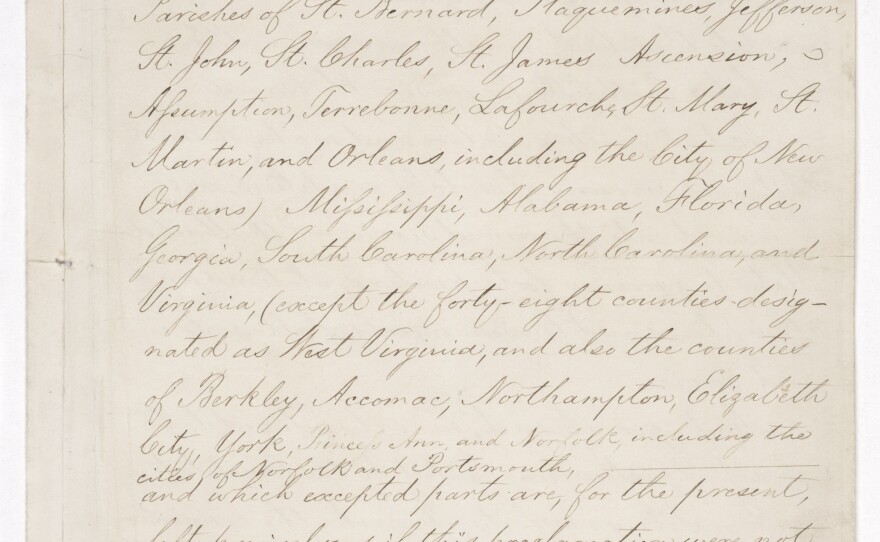 Parishes of St. Bernard, Plaquemines, Jefferson,
St. John, St. Charles, St. James Ascension,
Assumption, Terrebonne, Lafourche, St. Mary, St.
Martin, and Orleans, including the City of New
Orleans) Mississippi, Alabama, Florida,
Georgia, South Carolina, North Carolina, and
Virginia, (except the forty-eight counties desig-
nated as West Virginia, and also the counties
of Berkley, Accomac, Northampton, Elizabeth
City, York, Princess Ann, and Norfolk, including the
cities of Norfolk and Portsmouth,
and which excepted parts are, for the present,
left precisely as if this proclamation were not